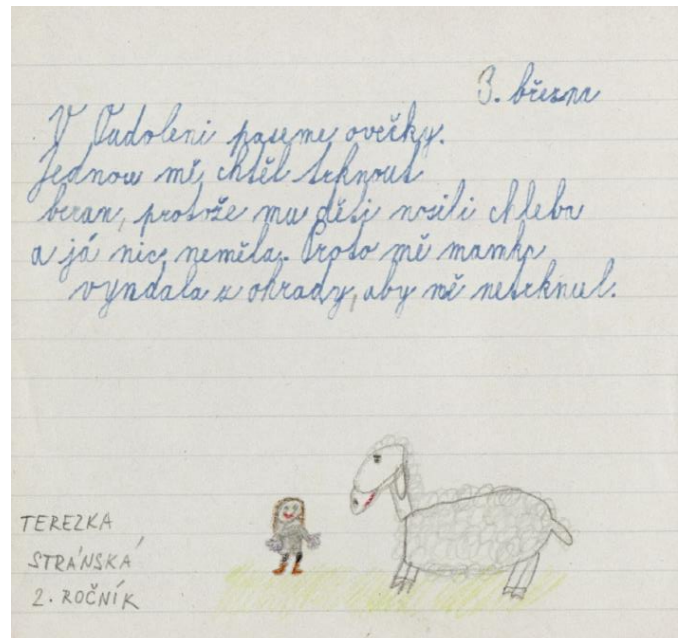 3. března
V Oudoleni paseme ovečky.
Jednou mě chtěl trknout
beran, protože mu děti nosili chleba
a já nic neměla. Proto mě mamka
vyndala z ohrady, aby mě netrknul.
TEREZKA
STRÁNSKÁ
2. ROČNÍK